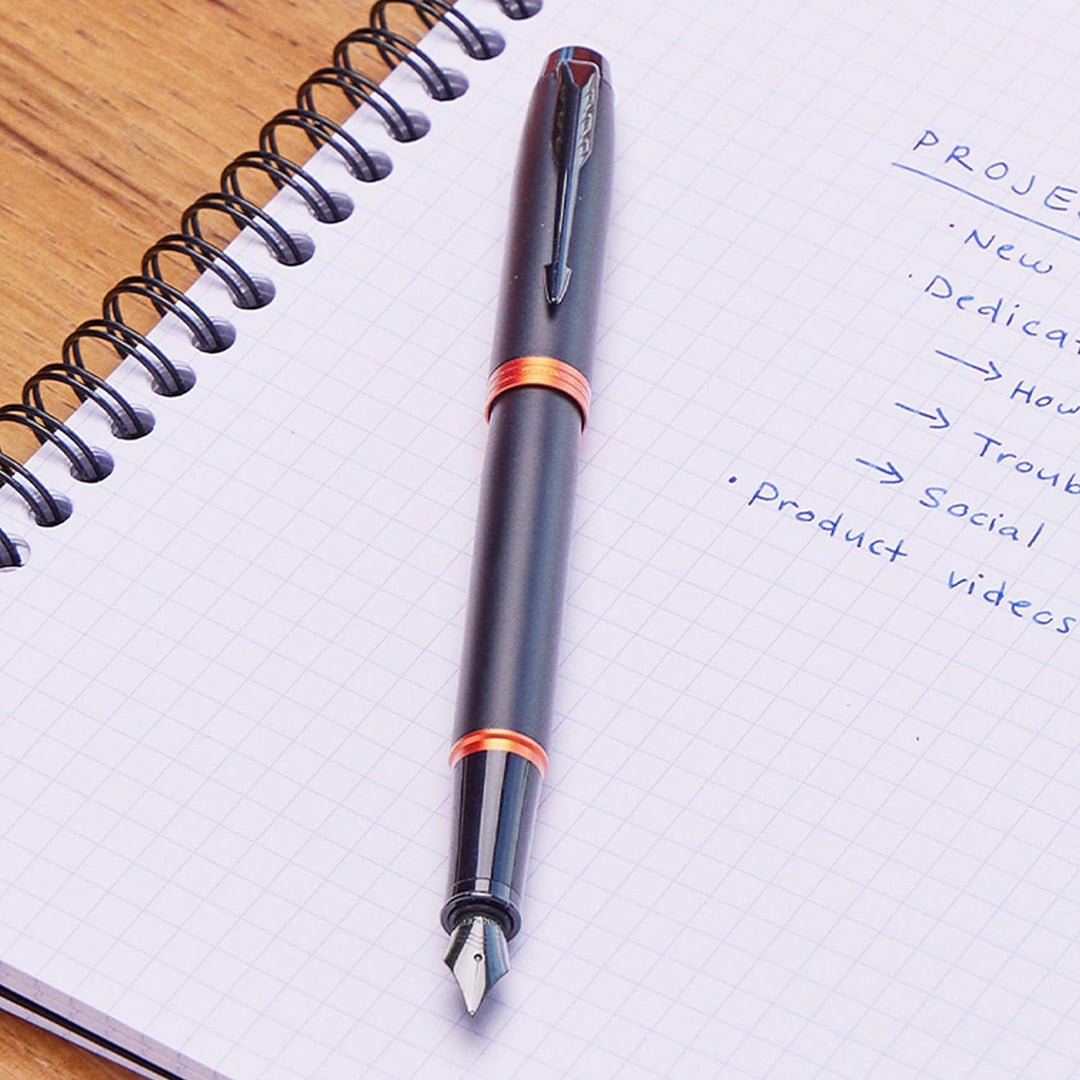 PROJE
· New
· Dedicat
→ How
→ Troub
→ Social
· Product videos